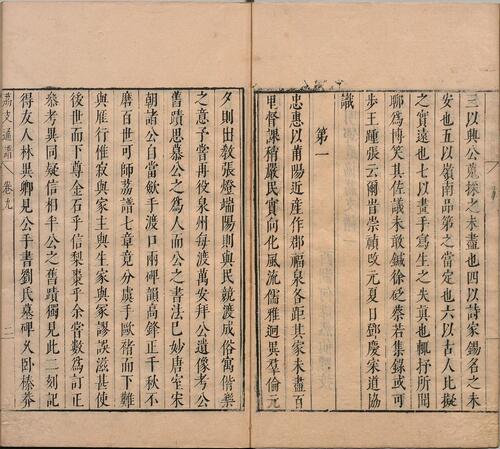 三以興公蒐採之未盡也四以詩家錫名之未
安也五以嶺南品第之當定也六以古人比擬
之實遠也七以畫手寫生之失真也輒抒所聞
聊爲博笑其佐議未敢鍼徐砭蔡若集錄或可
步王踵張云爾旹崇禎改元夏日鄧慶宷道協
識
第一
忠惠以莆陽近産作郡福泉各距其家未盡百
里督課稽嚴民實向化風流儒雅迥異羣倫元
夕則出教張燈端陽則與民競渡成俗寓偕樂
之意予嘗再役泉州每渡萬安拜公遺像考公
舊蹟思慕公之爲人而公之書法已妙唐室宋
朝諸公自當歛手渡口兩碑韻高鋒正千秋不
磨百世可師荔譜七章竟分虞手歐褚而下難
與雁行惟寂與家主與生家與家謬誤滋甚使
後世而下尊金石乎信梨棗乎余嘗數爲訂正
叅考異同疑信相半公之舊蹟獨見此二刻記
得友人林異卿見公手書劉氏墓碑久卧榛莽
荔支通譜
卷九
二